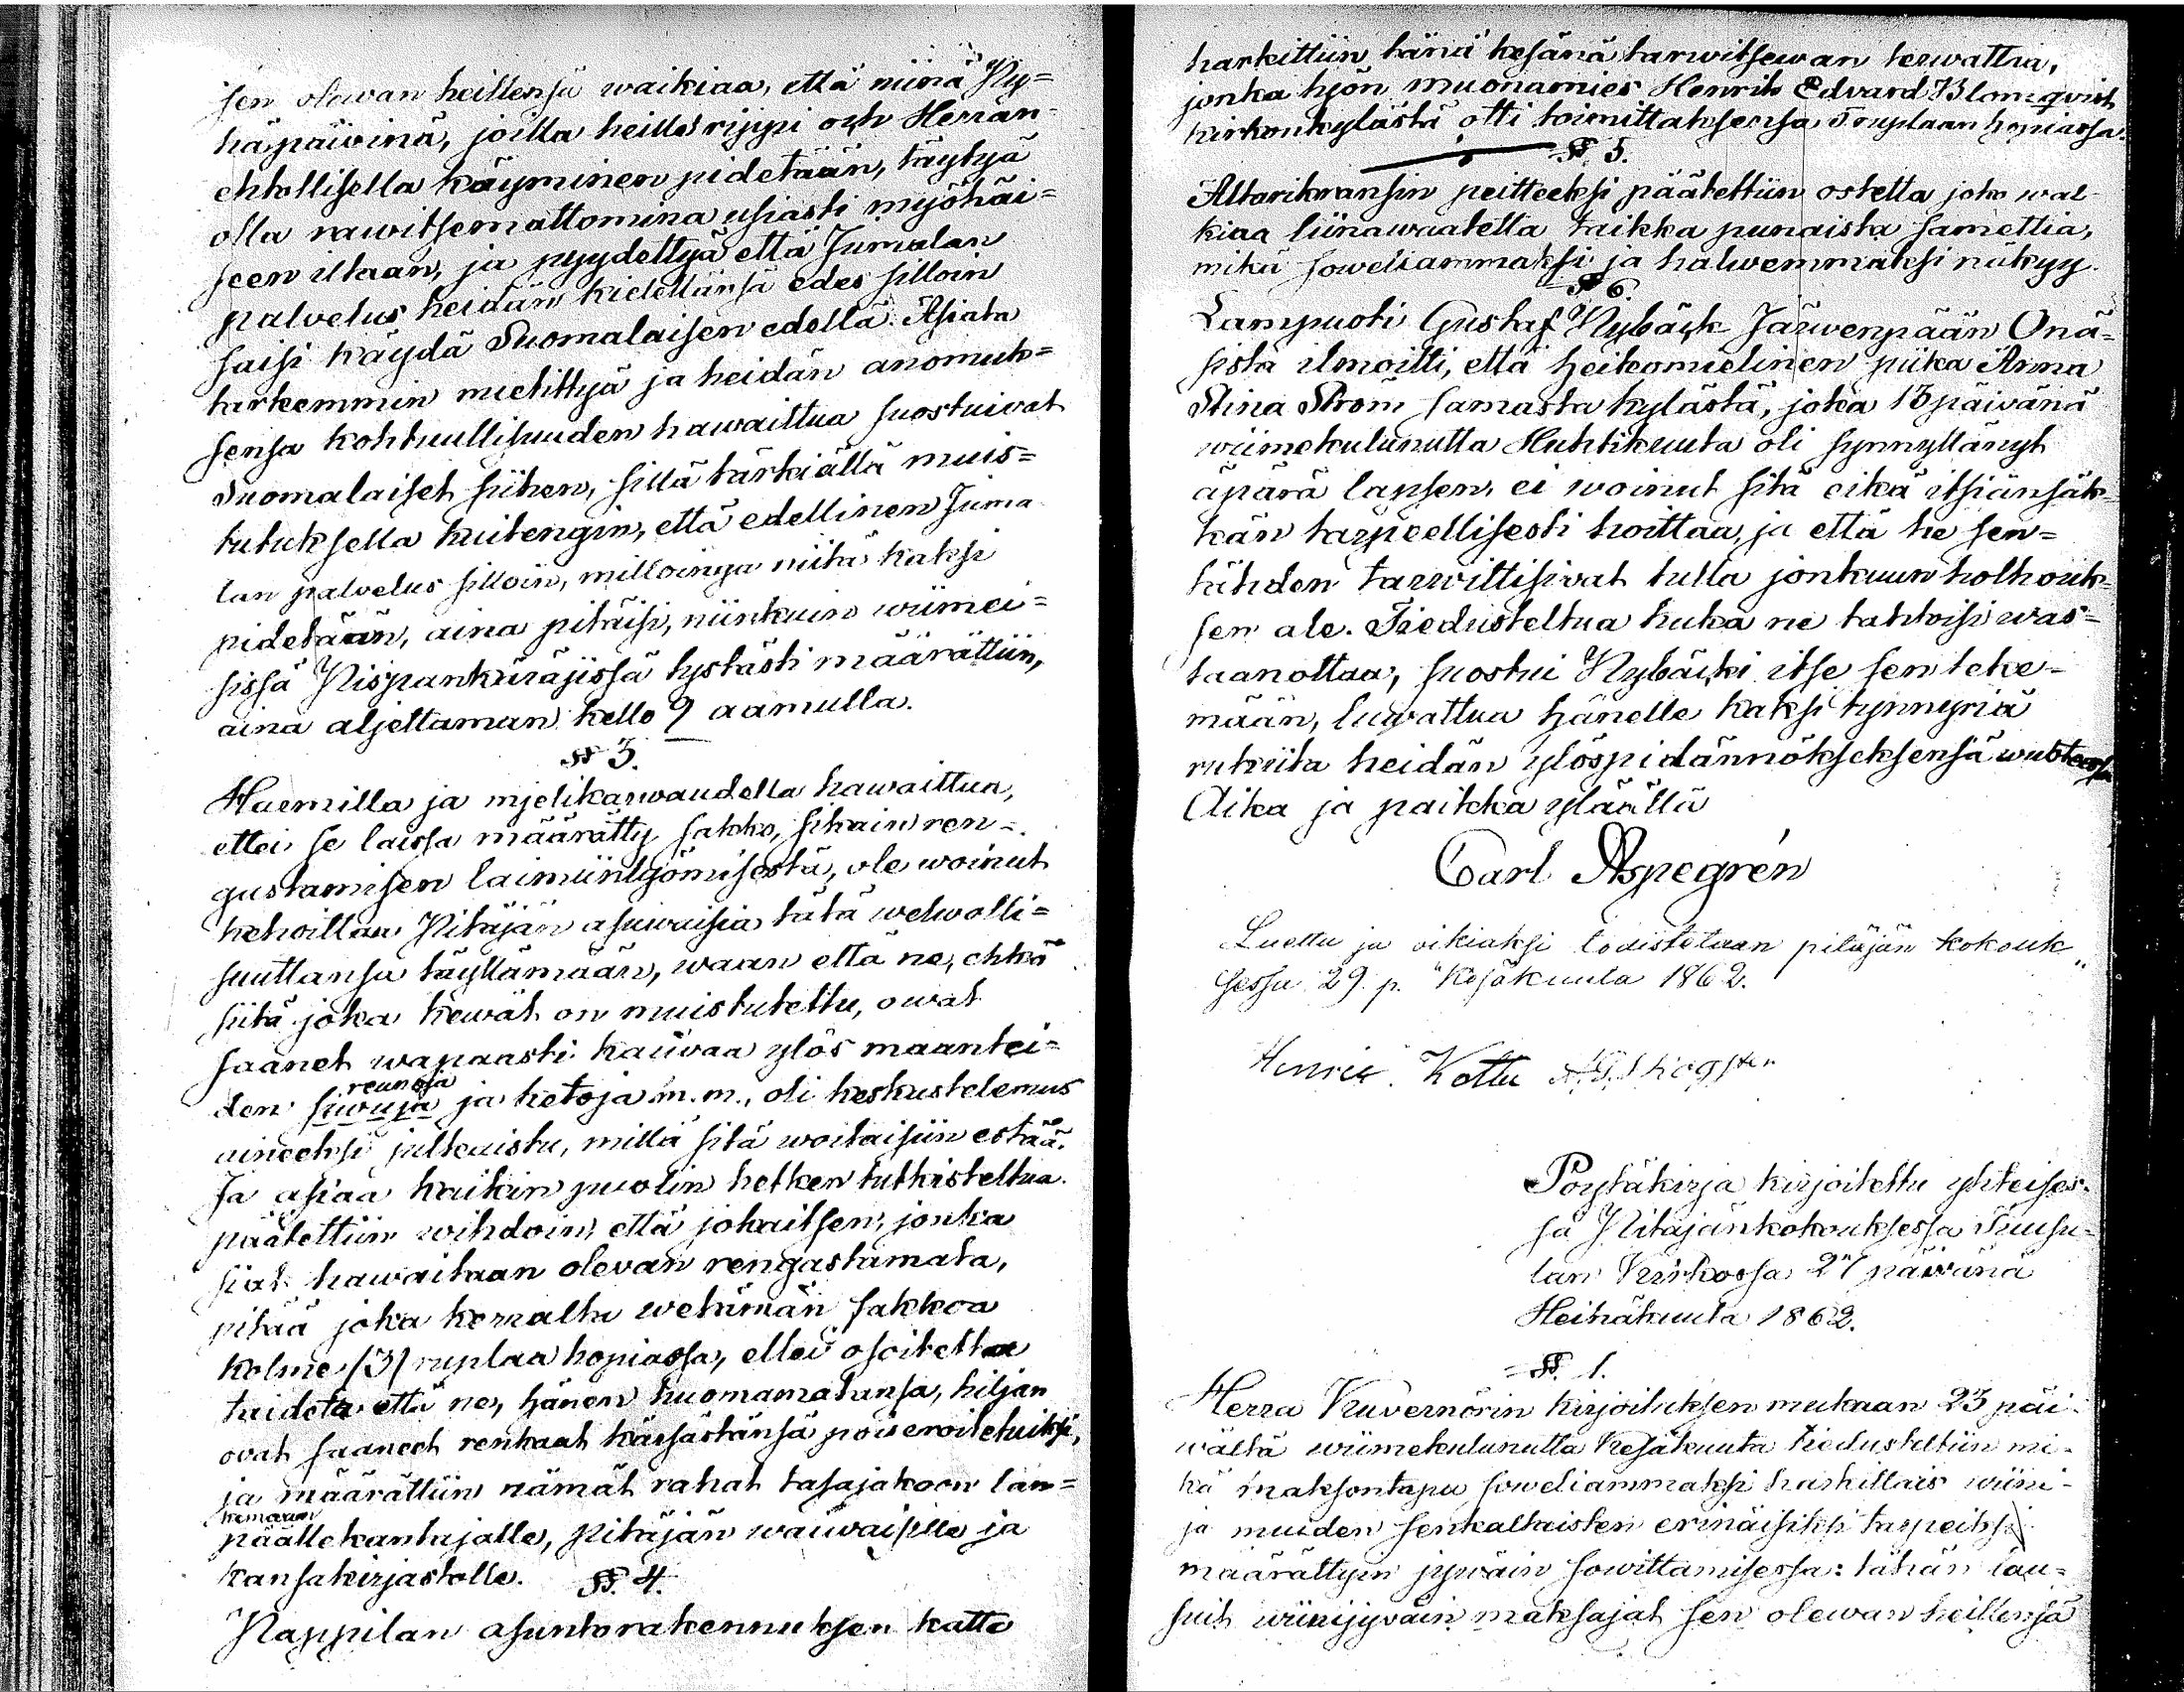 sen olewan heillensä waikiaa, että niinä Py=
häpäivinä, joilla heille rippi och Herran
ehtollisella käyminen pidetään, täytyä
olla rawitsemattomina usiasti myöhäi=
seen iltaan, ja pyydettyä että Jumalan
palvelus heidän kielellänsä edes silloin
saisi käydä Suomalaisen edellä. Asiata
tarkemmin mietittyä ja heidän anomuk=
sensa kohtuullisuuden hawaittua suostuivat
Suomalaiset siihen, sillä tärkiällä muis=
tutuksella kuitengin, että edellinen Juma
lan palvelus silloin, milloinga niitä kaksi
pidetään, aina pitäisi, niinkuin wiimei=
sissä Pispankäräjissä tystästi määrättiin,
aina aljettaman kello 9 aamulla.
§ 3.
Haemilla ja mjelikarwaudella hawaittua,
ettei se laissa määrätty sakko, sikain ren=
gustamisen laimiinlyömisestä, ole woinut
kehoittaa Pitäjän asuwaisia tätä welwolli=
suuttansa täyttämään, waan että ne, ehkä
siitä joka kewät on muistutettu, owat
saanet wapaasti kaiwaa ylös maantei=
reunoja
den siwuja ja ketoja m. m., oli keskustelemus
aineeksi julkaistu, millä sitä woitaisiin estää.
Ja asiaa kaikin puolin hetken tutkisteltua
päätettiin wihdoin, että jokaitsen, jonka
siat hawaitaan olevan rengastamata,
pitää joka kerralta wetämän sakkoa
kolme /3/ ruplaa hopiassa, ellei osoitettaa
taideta että ne, hänen huomamatansa, hiljan
ovat saaneet renkaat kärsästänsä pois eroitetuiksi,
ja määrättiin nämät rahat tasajakoon lan=
hamaan
päällekantajalle, pitäjän waiwaisille ja
kansakirjastolle. §. 4.
Pappilan asuntorakennuksen katto
harkittiin tänä kesänä tarwitsewan terwattaa,
jonka hjön muonamies Henrik Edvard Blomqvist
kirkonkylästä otti toimittaksensa 5 ruplaan hopiassa.
§. 5.
Altarikransin peitteeksi päätettiin ostetta joko wal
kiaa liinawaatetta taikka punaista samettia,
mikä soweliammaksi ja halwemmaksi näkyy.
§ 6.
Lampuoti Gustaf Nybäck Järwenpään Onä=
sistä ilmoitti, että heikomielinen piika Anna
Stina Ström samasta kylästä, joka 13 päivänä
wiimekulunutta Huhtikuuta oli synnyttänyt
äpärä lapsen, ei woinut sitä eikä itsiänsäk=
kän tarpeellisesti hoittaa, ja että he sen=
tähden tarwittisivat tulla jonkuun holhouk=
sen ale. Tiedusteltua kuka ne tahtoisi was=
taanottaa, suostui Nybäcki itse sen teke=
mään, luwattua hänelle kaksi tynnyriä
rukiita heidän ylöspidännökseksensä wuoteessa
Aika ja paikka ylläällä
Carl Aspegrén
Luettu ja oikiaksi todistetaan pitäjän kokouk„
sessa 29 p. Kesäkuuta 1862.
Henric Kottu
Pöytäkirja kirjoitettu yhteises=
sä Pitäjänkokouksessa Tuusu=
lan Kirkossa 27 päivänä
Heinäkuuta 1862.
§. 1.
Herra Kuvernörin kirjoituksen mukaan 23 päi=
wältä wiimekulunutta Kesäkuuta tiedusteltiin mi=
kä maksontapa soweliammaksi harkittais wiini=
ja muiden senkaltaisten erinäisiksi tarpeiksi
määrättyin jywäin sowittamisessa: tähän lau=
suit wiinijyväin maksajat sen olewan heillensä